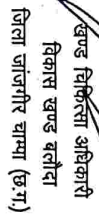 खण्ड चिकित्सा अधिकारी
विकास खण्ड बलौदा
जिला जांजगीर चाम्पा (छ.ग.)